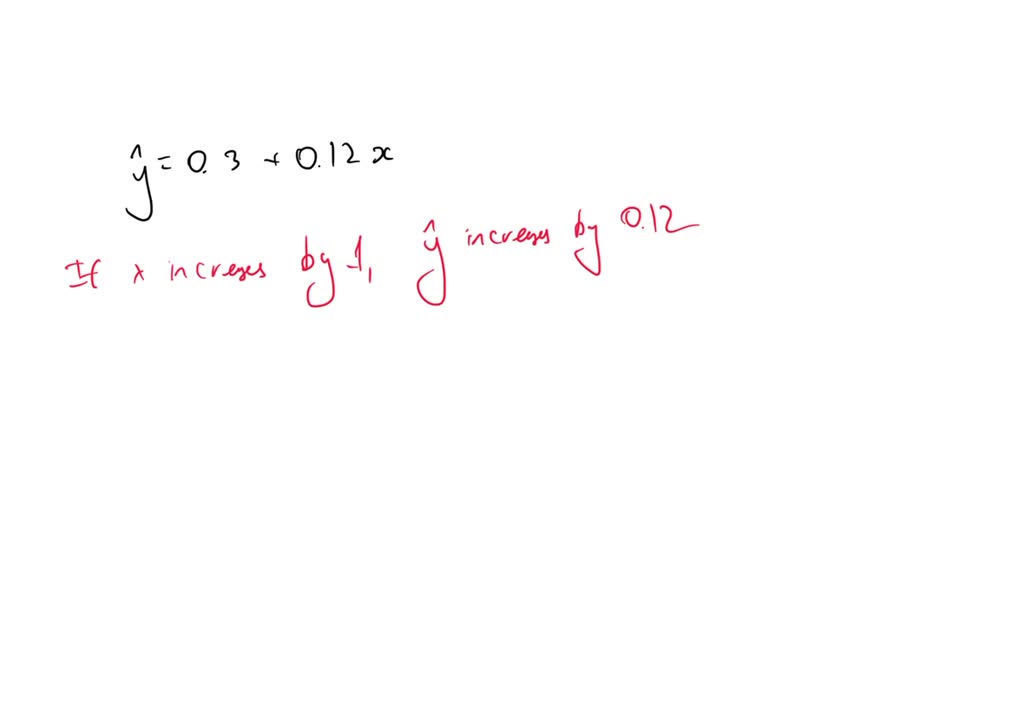 ŷ = 0.3 + 0.12x
If x increases by 1, ŷ increases by 0.12